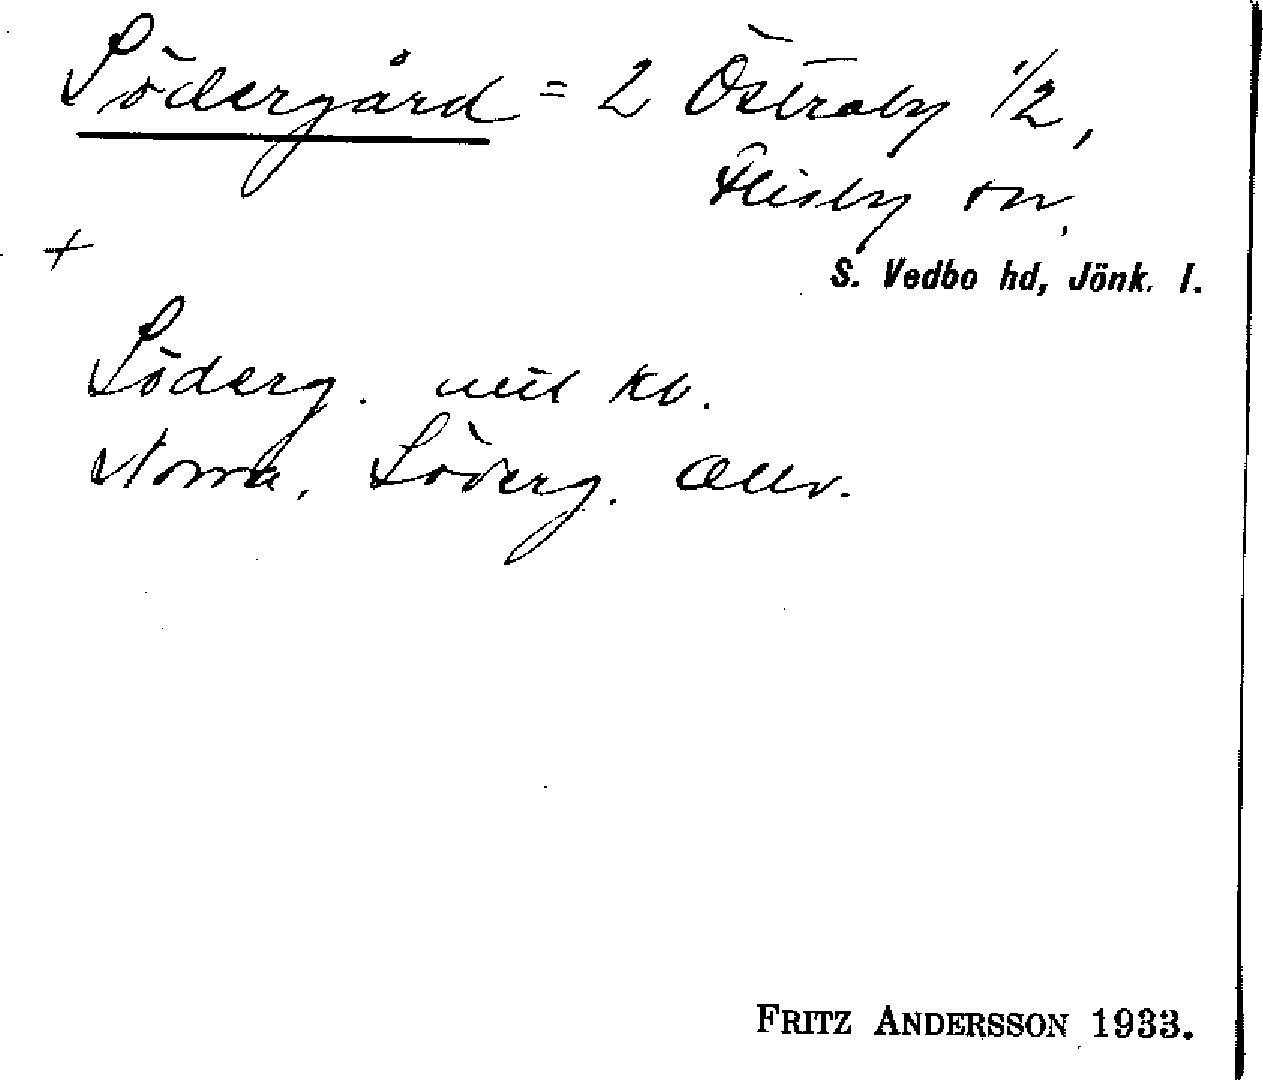 Södergård = 2 Östraby 1/2,
Flisby sn,
+
S. Vedbo hd, Jönk. l.
Söderg. util kb.
Norra, Söderg. allv.
FRITZ ANDERSSON 1933.